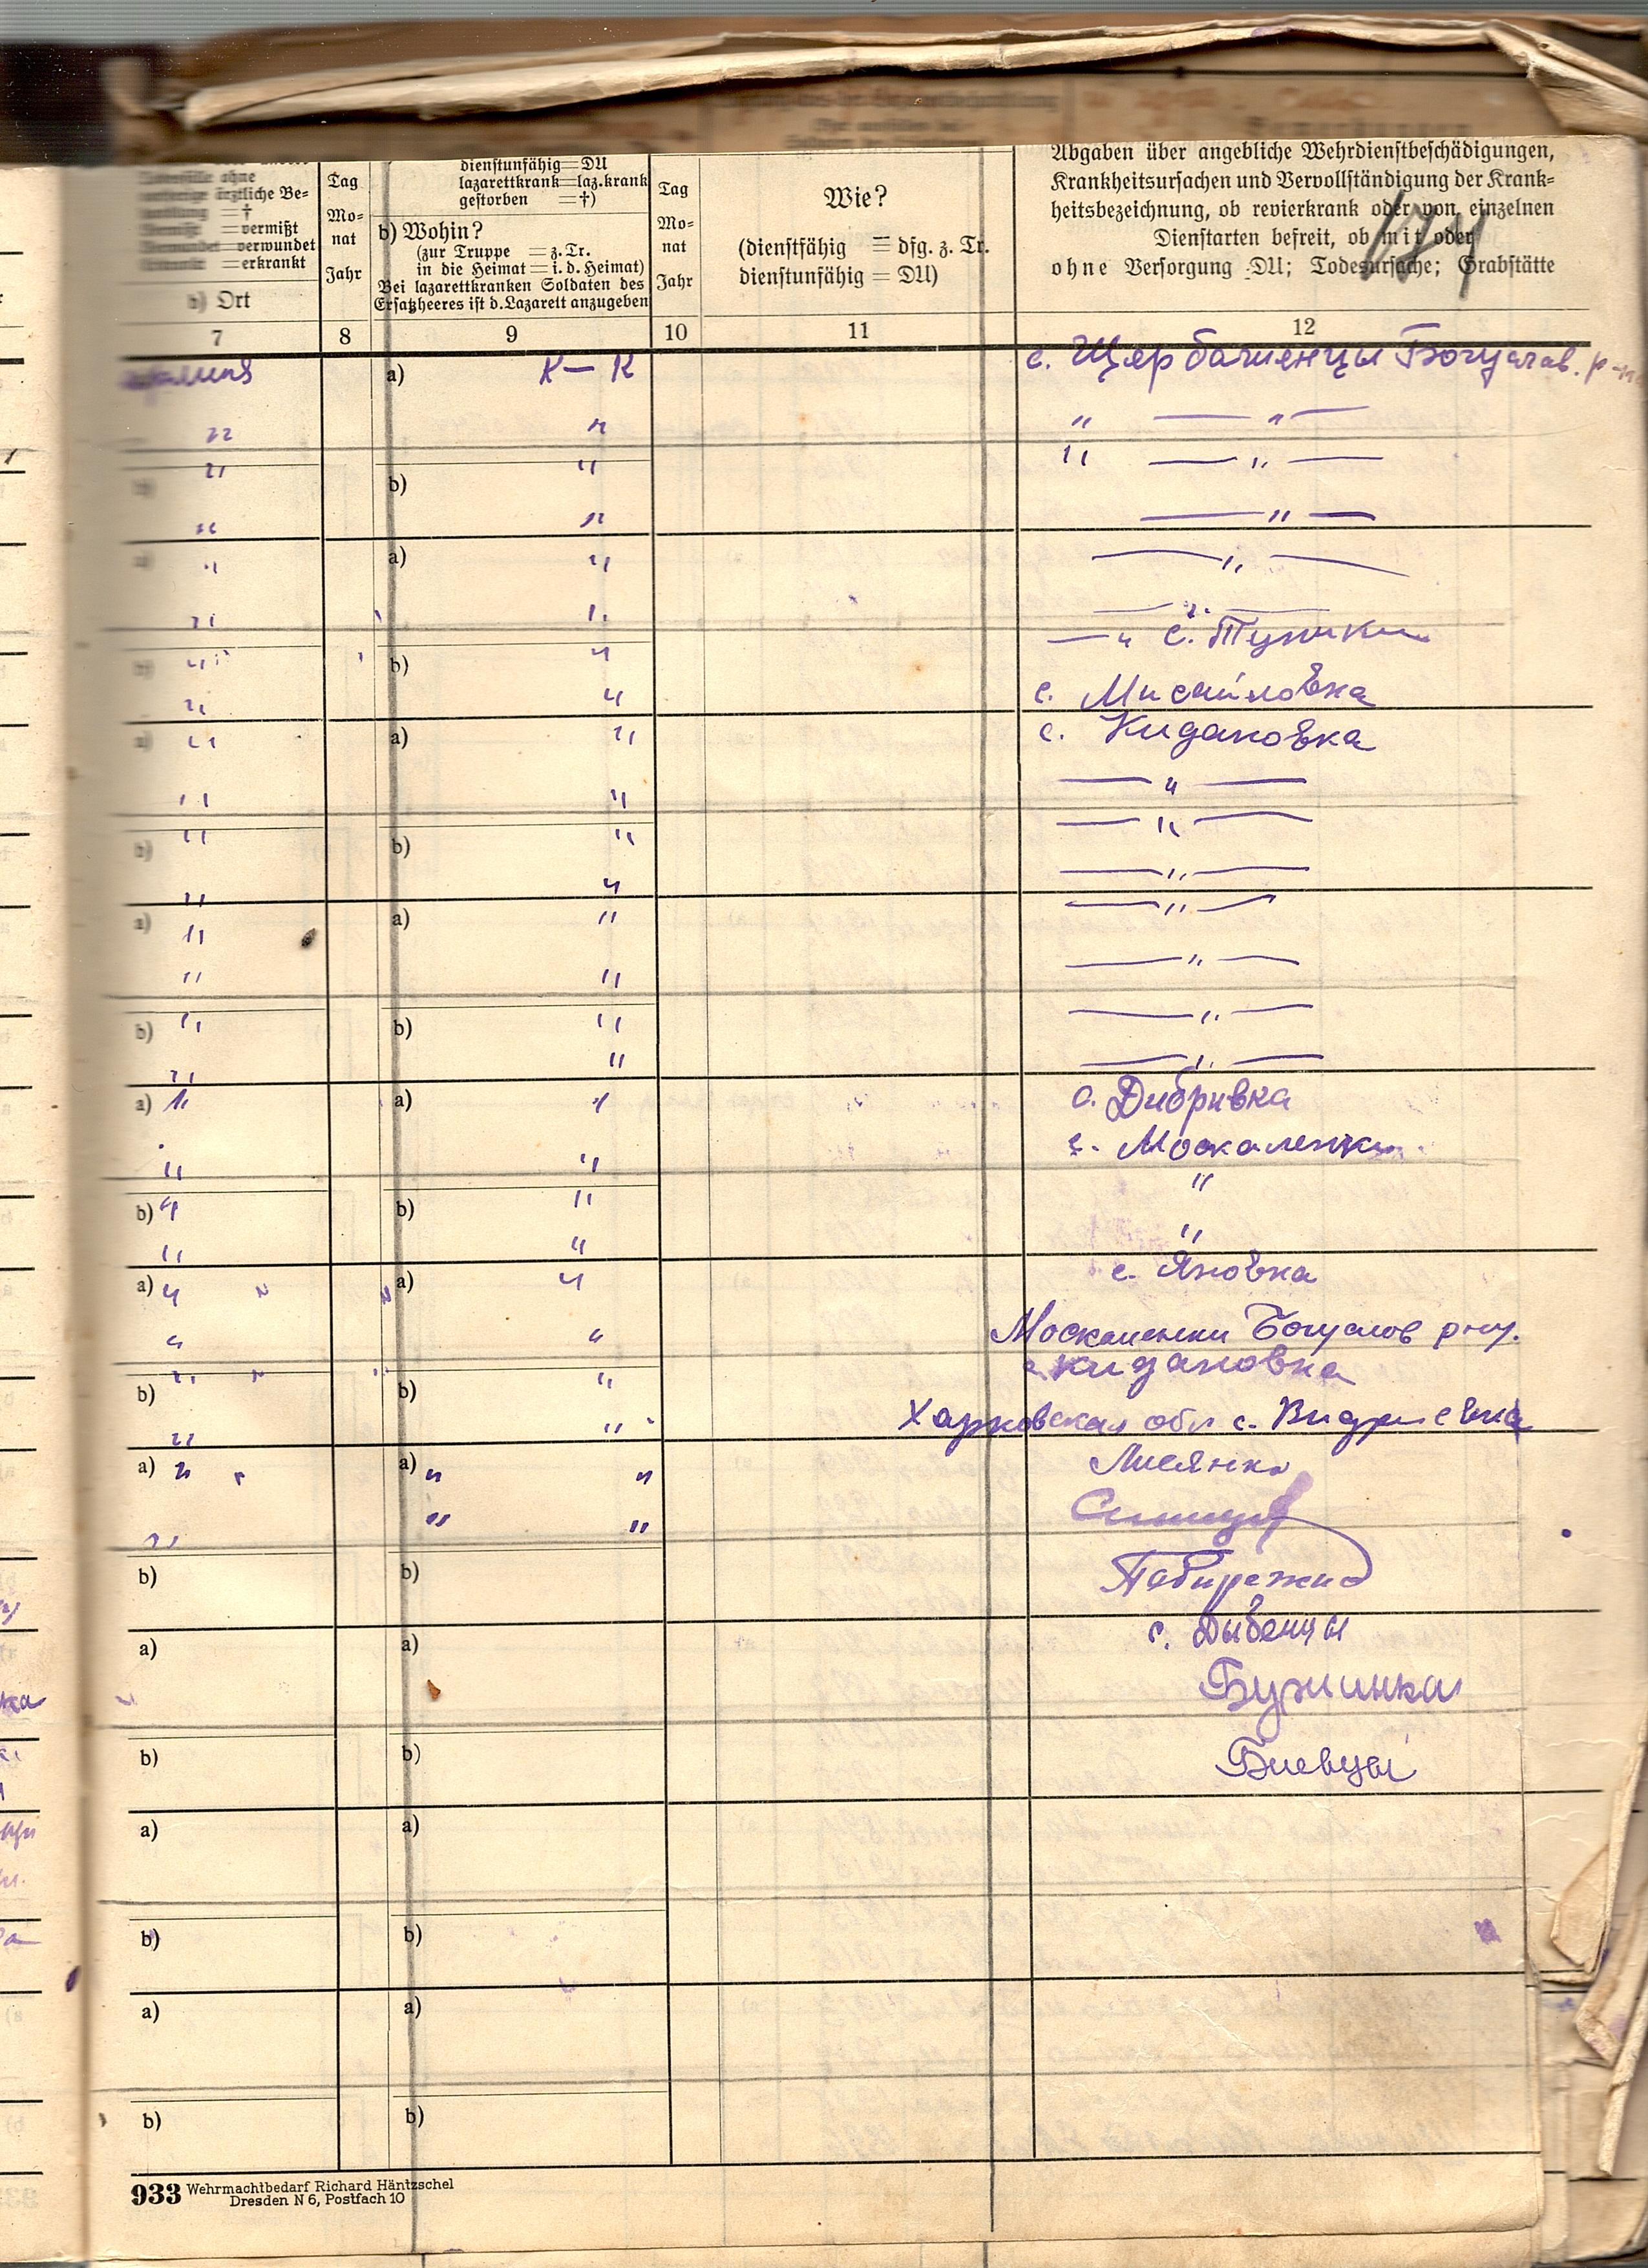 Tag
Mo-
nat
Jahr
ärztliche Be-
= †
= vermißt
= verwundet
= erkrankt
b) Ort
dienstunfähig = DU
lazarettkrank = laz. krank
gestorben = †)
b) Wohin?
(zur Truppe = z. Tr.
in die Heimat = i. d. Heimat)
Bei lazarettkranken Soldaten des
Ersatzheeres ist d. Lazarett anzugeben
Tag
Mo-
nat
Jahr
Wie?
(dienstfähig = dfg. z. Tr.
dienstunfähig = DU)
Abgaben über angebliche Wehrdienstbeschädigungen,
Krankheitsursachen und Vervollständigung der Krank-
heitsbezeichnung, ob revierkrank oder von einzelnen
Dienstarten befreit, ob mit oder
ohne Versorgung DU; Todesursache; Grabstätte
7 8 9 10 11 12
a) К — К с. Щербашенцы Богуслав. р-на
" " " — " —
" b) " " — " —
" " — " —
" a) " — " —
" " — " —
b) " b) " — " с. Тушки
" " с. Мисайловка
a) " a) " с. Кидановка
" " — " —
b) " b) " — " —
" " — " —
a) " a) " — " —
" " — " —
b) " b) " — " —
" " — " —
a) " a) " с. Дибривка
" " с. Москаленки
b) " b) " "
" " "
a) " a) " с. Яновка
" " Москаленки Богуслов р-ну.
b) " b) " с. Кидановка
" " Харковская обл с.
a) " a) " " Лисянка
" " "
b) b)
a) a) с. Дыбенцы
Бужинка
b) b) Биевцы
a) a)
b) b)
a) a)
b) b)
933 Wehrmachtbedarf Richard Häntzschel
Dresden N 6, Postfach 10